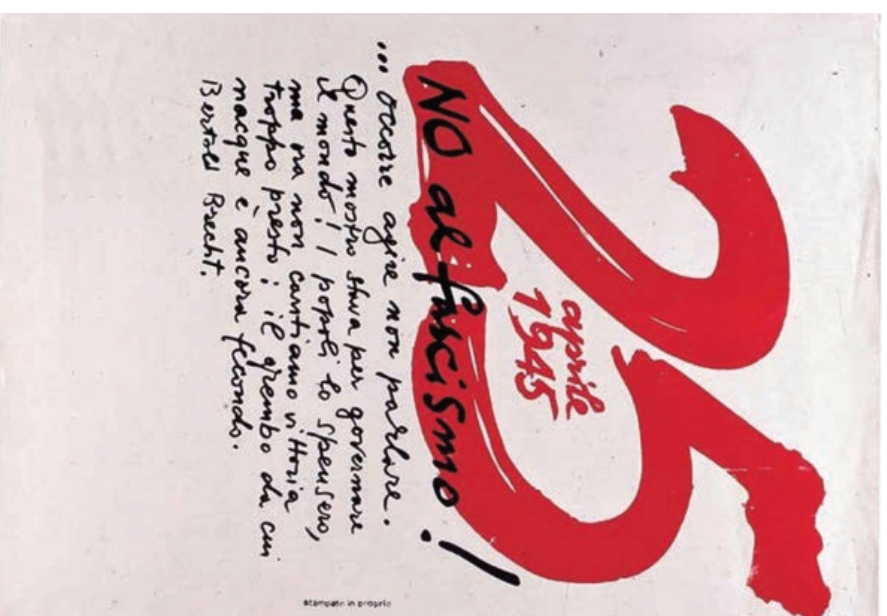 25
aprile
1945
NO al fascismo!
... occorre agire non parlare.
Questo mostro stava per governare
il mondo! I popoli lo spensero,
ma ora non cantiamo vittoria
troppo presto; il grembo da cui
nacque è ancora fecondo.
Bertold Brecht.
stampato in proprio